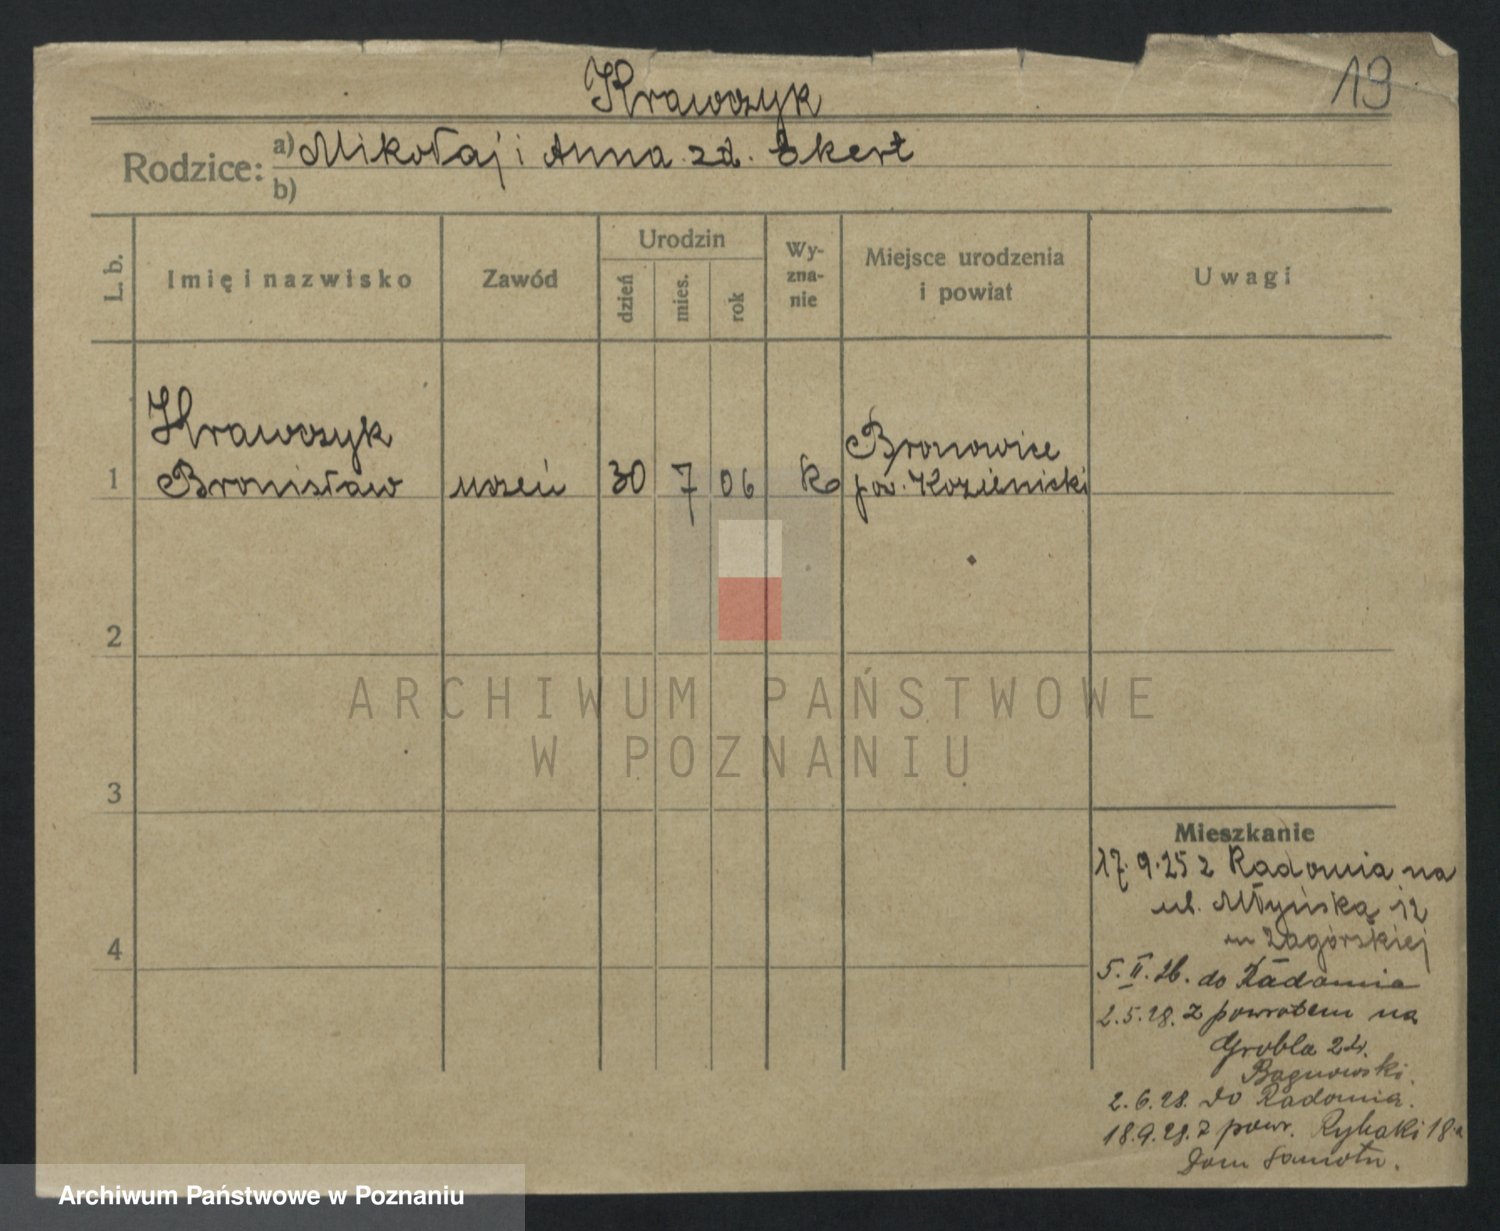 Krawczyk
19
Rodzice: a) Mikołaj i Anna zd. Ekert
b)
L. b.
Imię i nazwisko
Zawód
Urodzin
dzień
mies.
rok
Wy-
zna-
nie
Miejsce urodzenia
i powiat
Uwagi
Krawczyk
Bronisław
1
uczeń
30
7
06
Bronowice
pow. Kozienicki
2
ARCHIWUM PAŃSTWOWE
W POZNANIU
3
4
Mieszkanie
17.9.25 z Radomia na
ul. Młyńską 12
m Zagórskiej
5.II.26. do Radomia
2.5.28. z powrotem na
Grobla
2.6.28. do Radomia.
18.9.28. z powr. Rybaki 18a
Dom
Archiwum Państwowe w Poznaniu